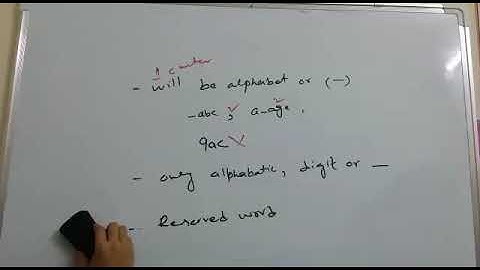 1 carter
- will be alphabet or (-)
-abc ✓, a-age ✓,
9ac
- only alphabatic, digit or -
- Reserved word